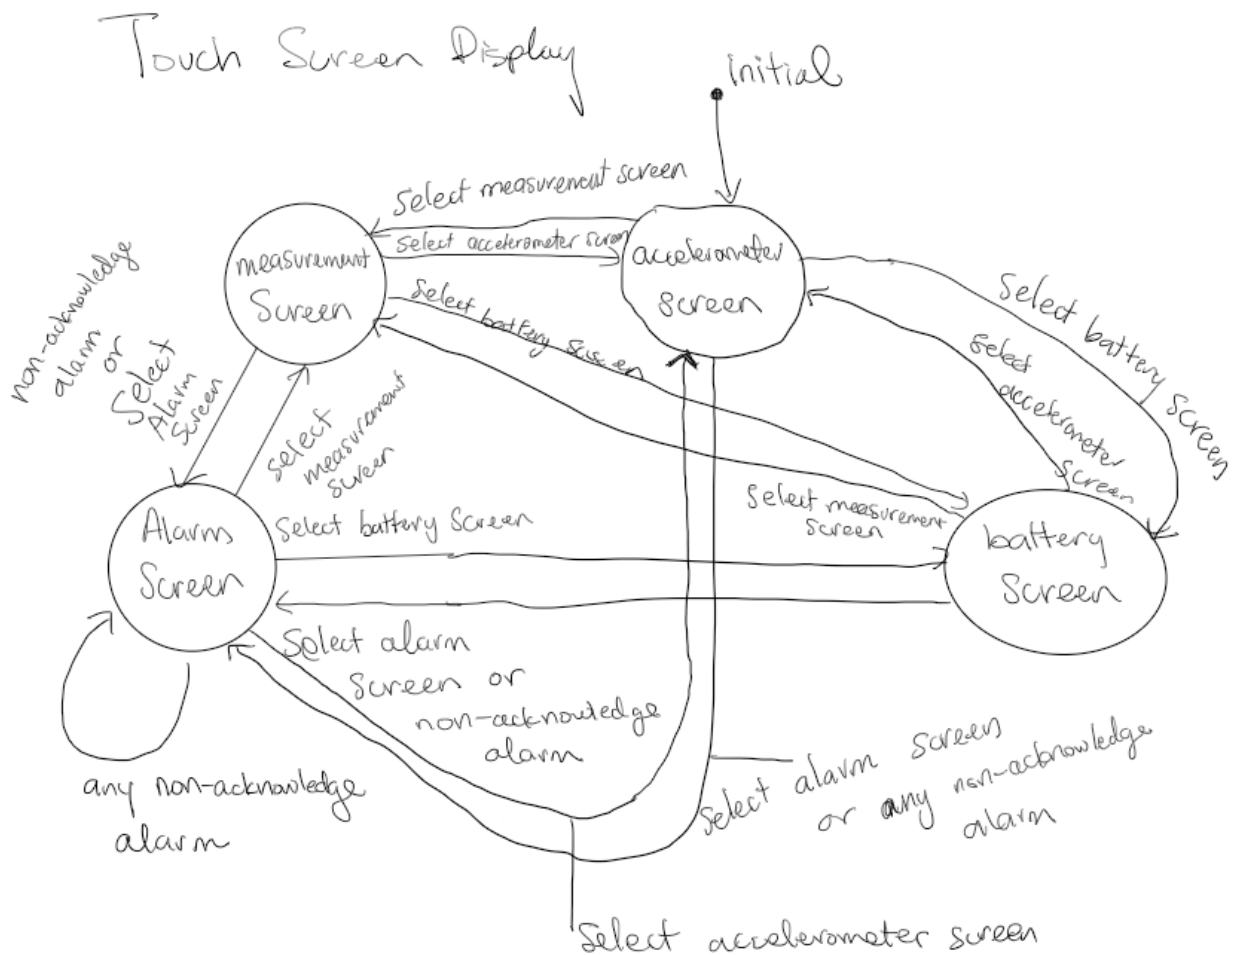 Touch Screen Display
initial
Select measurement screen
Select accelerometer screen
measurement
Screen
accelerometer
screen
Select battery screen
Select battery screen
select
accelerometer
screen
non-acknowledge
alarm or
Select
Alarm
screen
select
measurement
screen
Select measurement
screen
Alarm
Screen
Select battery Screen
battery
Screen
Select alarm
Screen or
non-acknowledge
alarm
any non-acknowledge
alarm
Select alarm screen
or any non-acknowledge
alarm
Select accelerometer screen